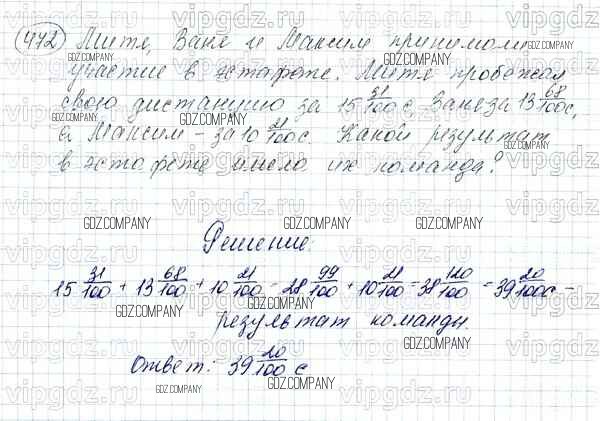 472 Митя, Ваня и Максим принимали
участие в эстафете. Митя пробежал
свою дистанцию за 15 31/100 с, Ваня за 13 68/100 с,
а Максим - за 10 21/100 с. Какой результат
в эстафете имела их команда?
Решение:
15 31/100 + 13 68/100 + 10 21/100 = 28 99/100 + 10 21/100 = 38 120/100 = 39 20/100 с -
результат команды.
Ответ: 39 20/100 с